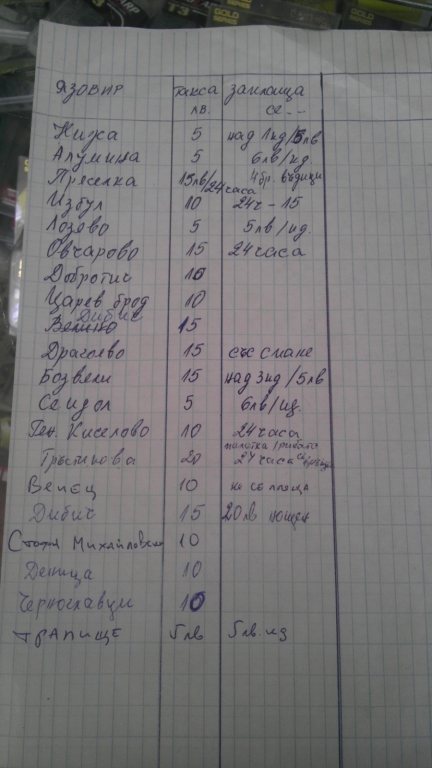 ЯЗОВИР такса заплаща
лв. се - -
Нижа 5 над 1кд/5лв
Алумина 5 6лв/кд.
Преселка 15лв/24часа 4бр. въдици
Избул 10 24ч - 15
Лозево 5 5лв/кд.
Овчарово 15 24 часа
Добротич 10
Царев брод 10
Дибич 15
Драгоево 15 със спане
Бозвели 15 над 3кд /5лв
Сеидол 5 6лв/кд.
Ген. Киселово 10 24 часа
Тръстикова 20 24 часа
Венец 10 не се плаща
Дибич 15 20лв нощен
Стоян Михайловски 10
Деница 10
Черноглавци 10
ТРАПИЩЕ 5лв 5лв. кд